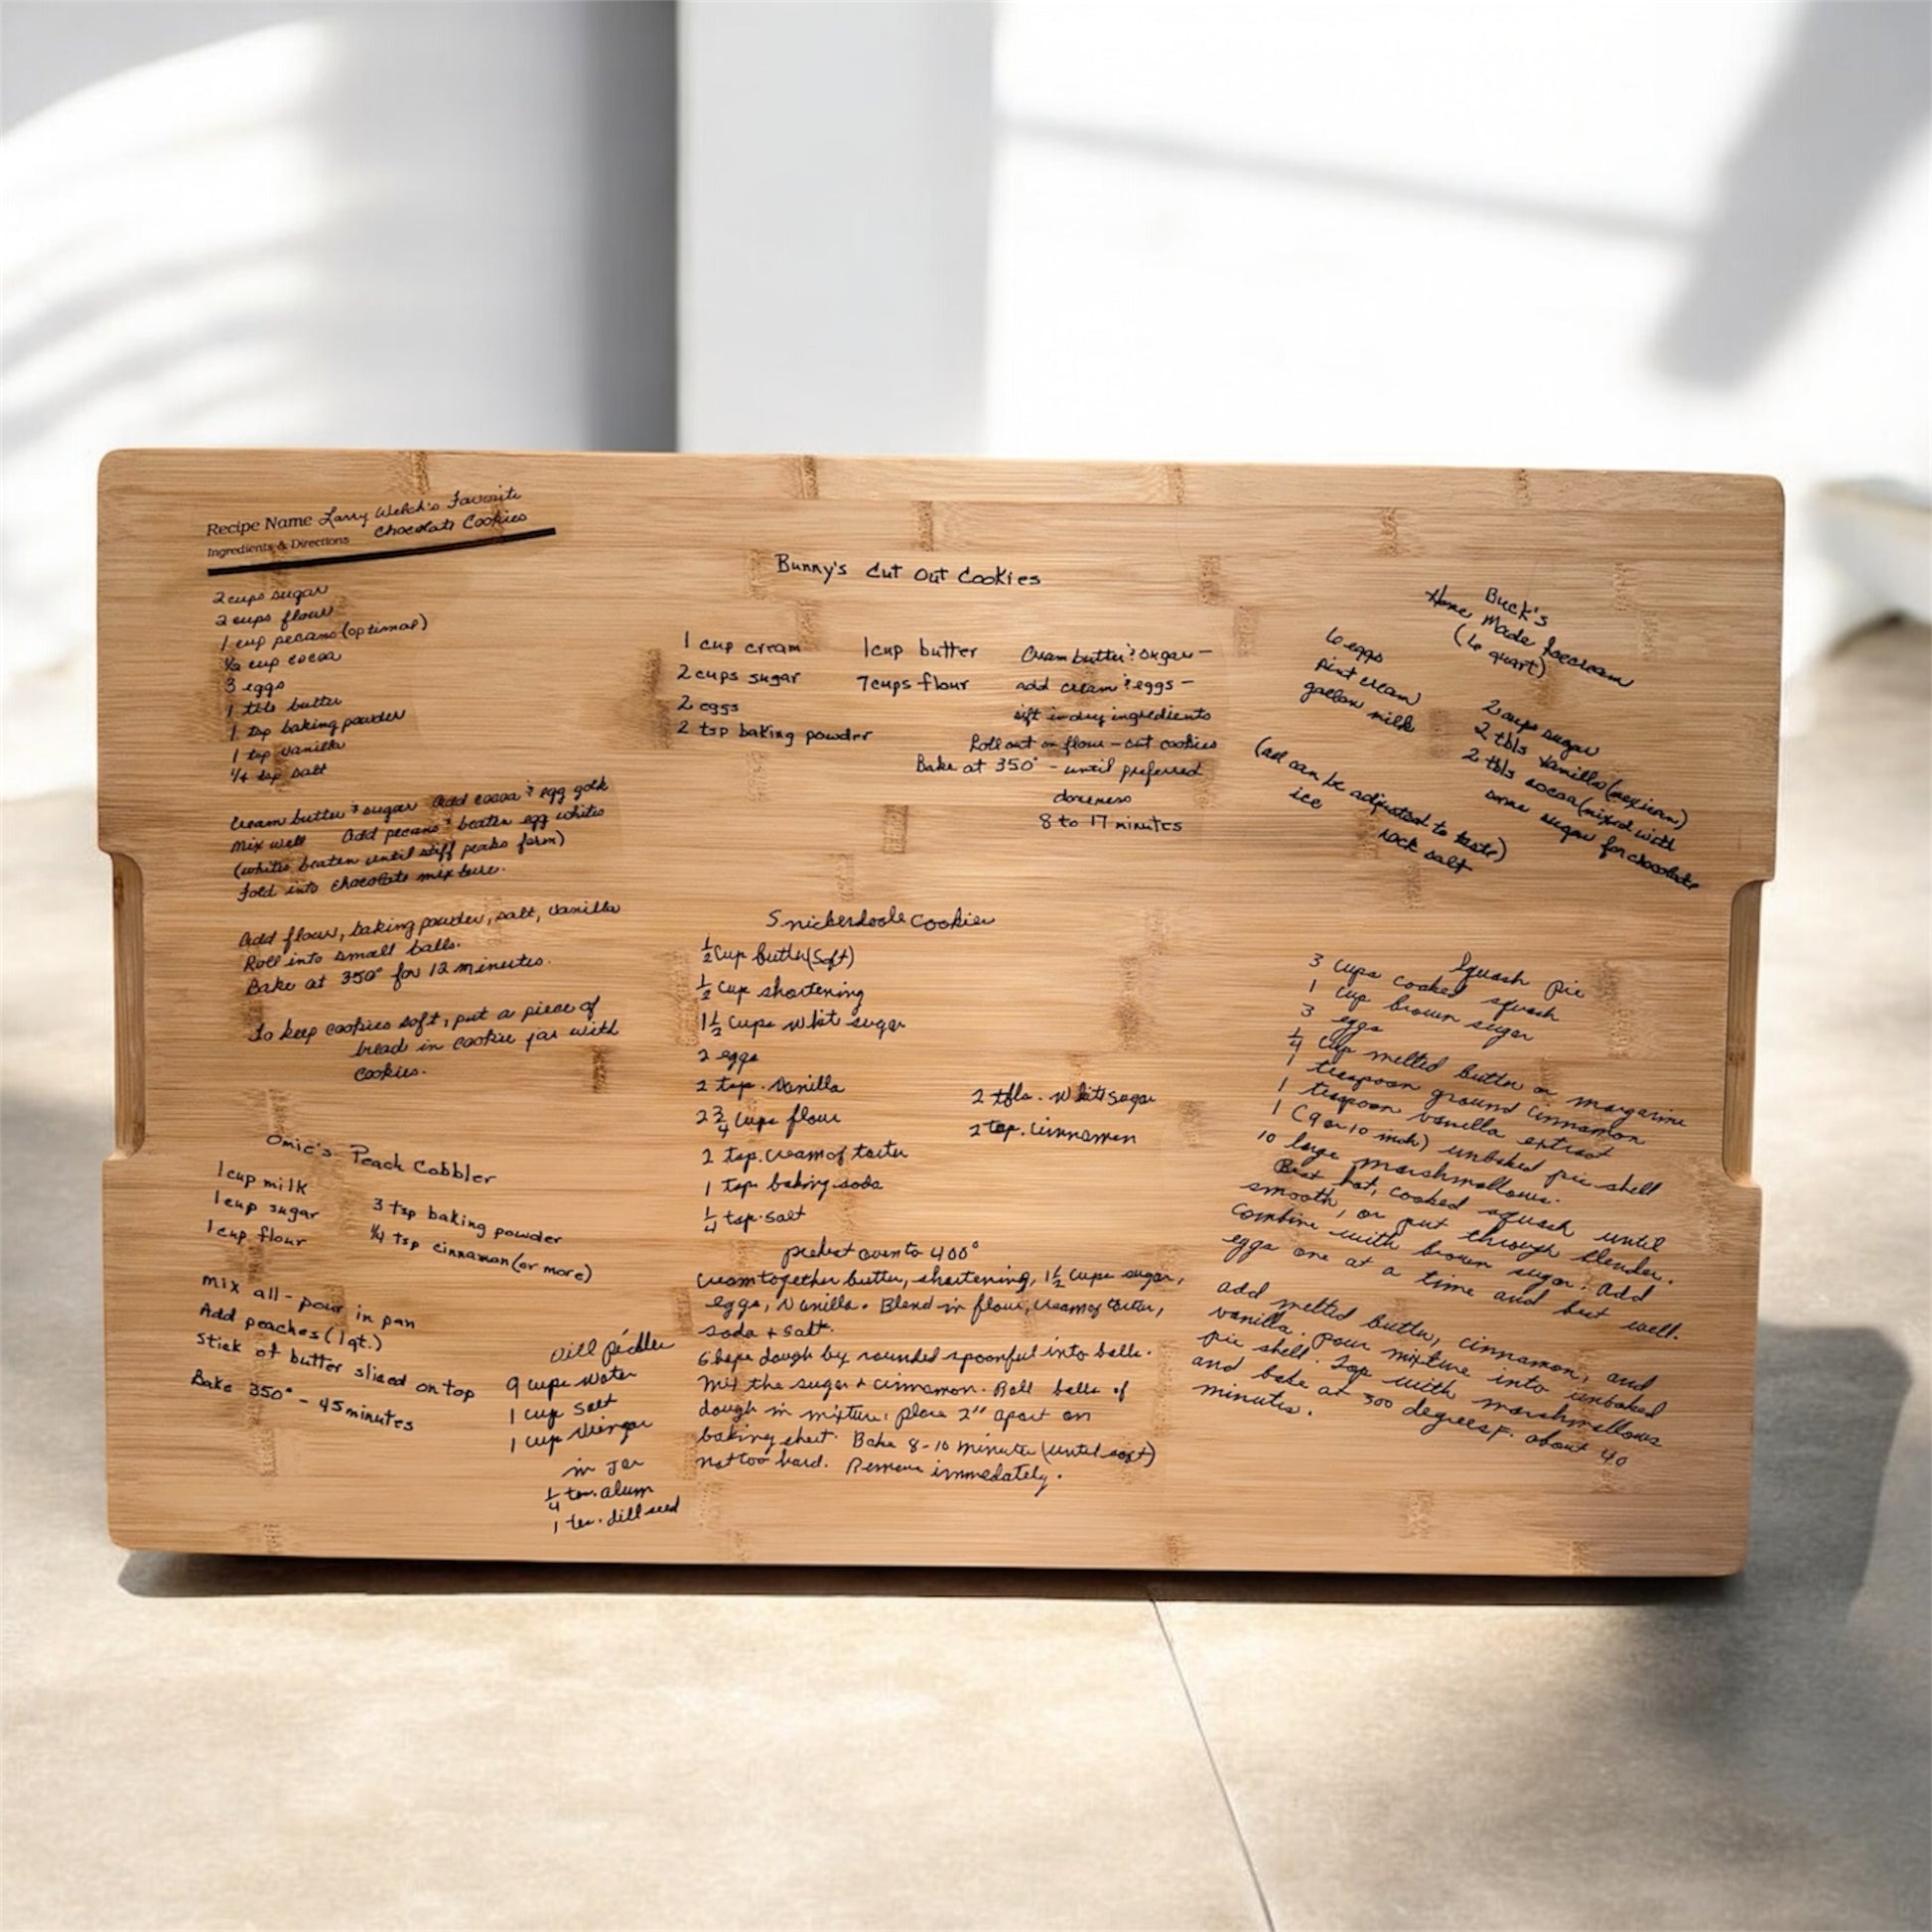 Recipe Name Larry Welch's Favorite
Chocolate Cookies
Ingredients & Directions
2 cups sugar
2 cups flour
1 cup pecans (optional)
1/2 cup cocoa
3 eggs
1 tbls butter
1 tsp baking powder
1 tsp vanilla
1/4 tsp salt
Cream butter & sugar Add cocoa & egg yolk
mix well Add pecans & beaten egg whites
(whites beaten until stiff peaks form)
Fold into chocolate mixture.
Add flour, baking powder, salt, vanilla
Roll into small balls.
Bake at 350° for 12 minutes.
To keep cookies soft, put a piece of
bread in cookie jar with
cookies.
Omie's Peach Cobbler
1 cup milk
1 cup sugar
1 cup flour
3 tsp baking powder
1/4 tsp cinnamon (or more)
mix all - pour in pan
Add peaches (1 qt.)
Stick of butter sliced on top
Bake 350° - 45 minutes
Dill pickles
9 cups water
1 cup salt
1 cup
in jar
1/4 alum
1 dill seed
Bunny's Cut Out Cookies
1 cup cream
2 cups sugar
2 eggs
2 tsp baking powder
1 cup butter
7 cups flour
Cream butter & sugar -
add cream & eggs -
sift in dry ingredients
Roll out on flour - cut cookies
Bake at 350° - until preferred
doneness
8 to 17 minutes
Snickerdoole Cookies
1/2 cup butter (soft)
1/2 cup shortening
1 1/2 cups whit sugar
2 eggs
2 tsp. vanilla
2 3/4 cups flour
2 tsp. cream of tarter
1 tsp baking soda
1/4 tsp. salt
2 tbls. whit sugar
2 tsp. cinnamon
preheat oven to 400°
Cream together butter, shortening, 1 1/2 cups sugar,
eggs, vanilla. Blend in flour, cream of tarter,
soda + salt.
Shape dough by rounded spoonful into balls.
Mix the sugar + cinnamon. Roll balls of
dough in mixture, place 2" apart on
baking sheet. Bake 8-10 minutes (until soft)
not too hard. Remove immediately.
Buck's
Home Made Icecream
(6 quart)
6 eggs
pint cream
gallon milk
2 cups sugar
2 tbls vanilla (mexican)
2 tbls cocoa (mixed with
some sugar for chocolate
(all can be adjusted to taste)
ice
rock salt
Squash pie
3 cups cooked squash
1 cup brown sugar
3 eggs
1/4 cup melted butter or margarine
1 teaspoon ground cinnamon
1 teaspoon vanilla extract
1 (9 or 10 inch) unbaked pie shell
10 large marshmallows.
Beat hot, cooked squash until
smooth, or put through blender.
Combine with brown sugar. Add
eggs one at a time and beat well.
add melted butter, cinnamon, and
vanilla. pour mixture into unbaked
pie shell. Top with marshmallows
and bake at 300 degrees F. about 40
minutes.